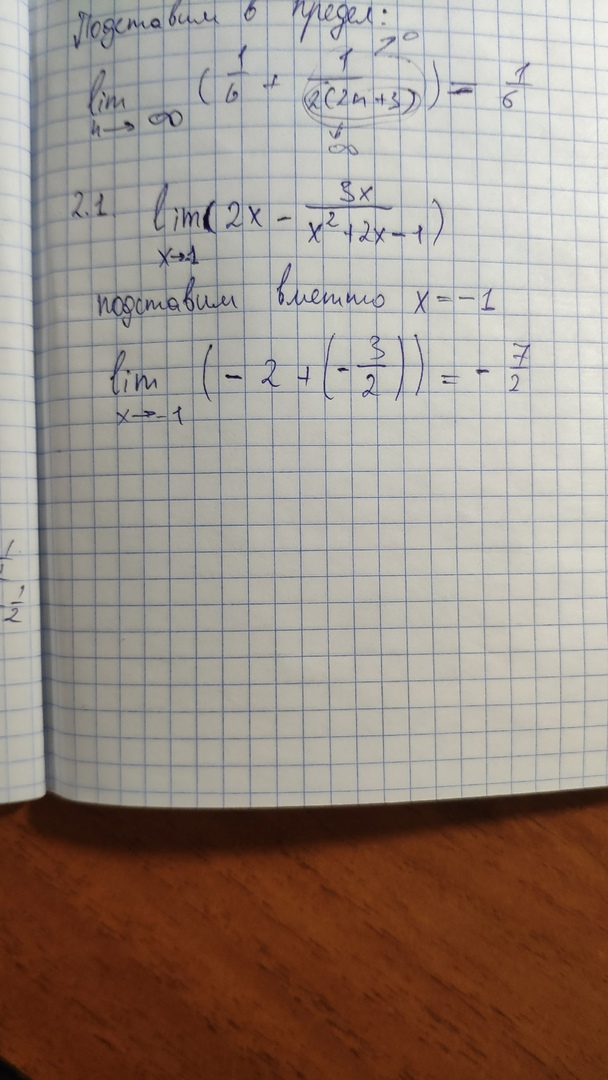 Подставим в предел:
lim n→∞ (1/6 + 1/(2(2n+3))) = 1/6
→0
↓ ∞
2.1. lim x→-1 (2x - 3x/(x²+2x-1))
подставим вместо x = -1
lim x→-1 (-2 + (-3/2)) = -7/2
1/2